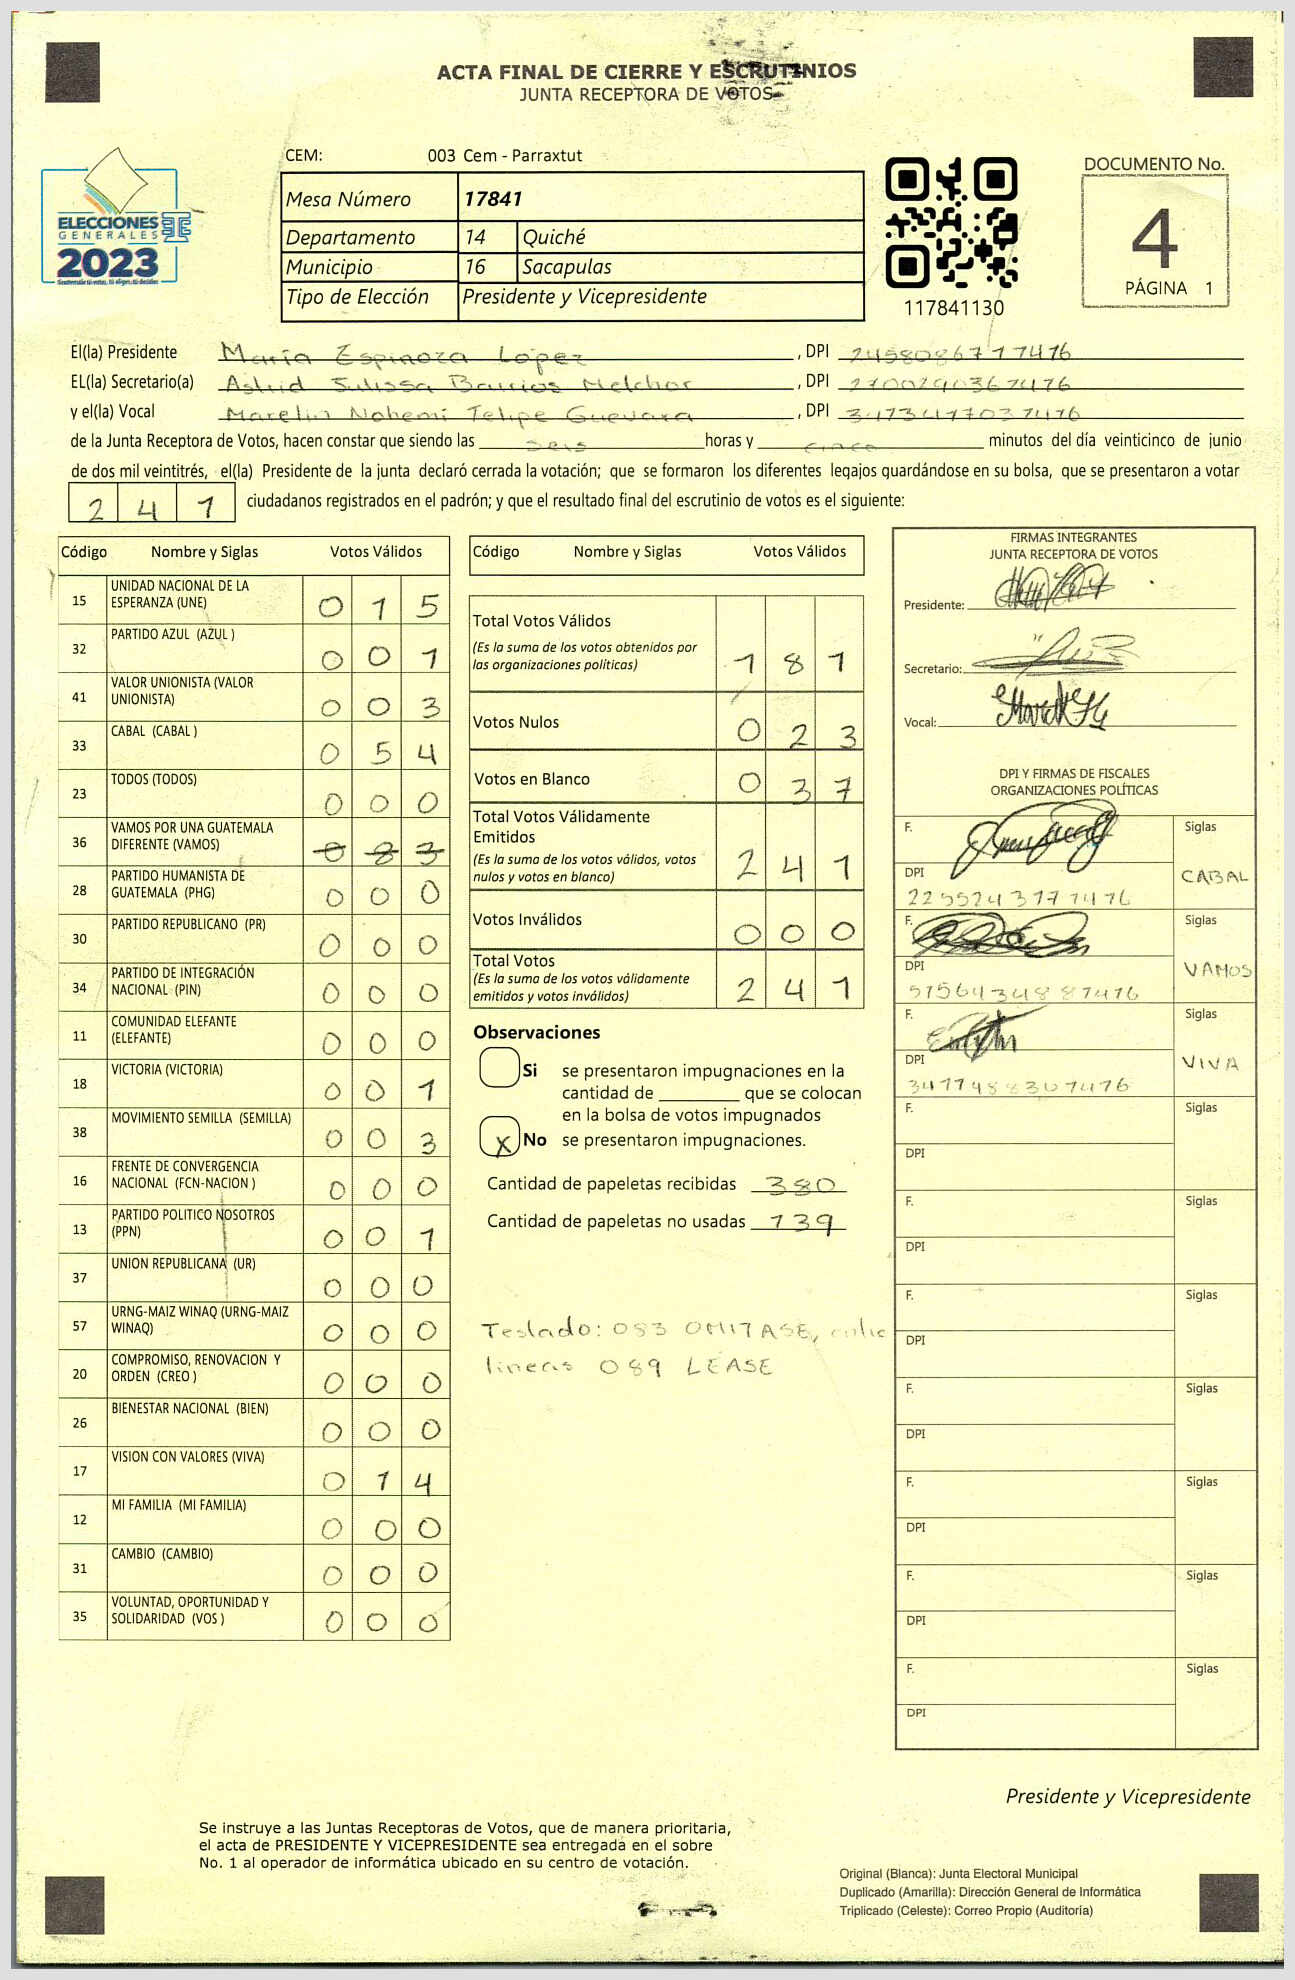 ACTA FINAL DE CIERRE Y ESCRUTINIOS
JUNTA RECEPTORA DE VOTOS
CEM: 003 Cem - Parraxtut
ELECCIONES
GENERALES
2023
Mesa Número 17841
Departamento 14 Quiché
Municipio 16 Sacapulas
Tipo de Elección Presidente y Vicepresidente
117841130
DOCUMENTO No.
4
PÁGINA 1
El(la) Presidente María Espinoza López, DPI 2458086717416
EL(la) Secretario(a) Astrid Julissa Barrios Melchor, DPI
y el(la) Vocal Marelin Nohemí Felipe Guevara, DPI
de la Junta Receptora de Votos, hacen constar que siendo las seis horas y cinco minutos del día veinticinco de junio
de dos mil veintitrés, el(la) Presidente de la junta declaró cerrada la votación; que se formaron los diferentes legajos guardándose en su bolsa, que se presentaron a votar
2 4 1 ciudadanos registrados en el padrón; y que el resultado final del escrutinio de votos es el siguiente:
Código Nombre y Siglas Votos Válidos
15 UNIDAD NACIONAL DE LA ESPERANZA (UNE) 0 1 5
32 PARTIDO AZUL (AZUL ) 0 0 1
41 VALOR UNIONISTA (VALOR UNIONISTA) 0 0 3
33 CABAL (CABAL ) 0 5 4
23 TODOS (TODOS) 0 0 0
36 VAMOS POR UNA GUATEMALA DIFERENTE (VAMOS) 0 8 3
28 PARTIDO HUMANISTA DE GUATEMALA (PHG) 0 0 0
30 PARTIDO REPUBLICANO (PR) 0 0 0
34 PARTIDO DE INTEGRACIÓN NACIONAL (PIN) 0 0 0
11 COMUNIDAD ELEFANTE (ELEFANTE) 0 0 0
18 VICTORIA (VICTORIA) 0 0 1
38 MOVIMIENTO SEMILLA (SEMILLA) 0 0 3
16 FRENTE DE CONVERGENCIA NACIONAL (FCN-NACION ) 0 0 0
13 PARTIDO POLITICO NOSOTROS (PPN) 0 0 1
37 UNION REPUBLICANA (UR) 0 0 0
57 URNG-MAIZ WINAQ (URNG-MAIZ WINAQ) 0 0 0
20 COMPROMISO, RENOVACION Y ORDEN (CREO ) 0 0 0
26 BIENESTAR NACIONAL (BIEN) 0 0 0
17 VISION CON VALORES (VIVA) 0 1 4
12 MI FAMILIA (MI FAMILIA) 0 0 0
31 CAMBIO (CAMBIO) 0 0 0
35 VOLUNTAD, OPORTUNIDAD Y SOLIDARIDAD (VOS ) 0 0 0
Código Nombre y Siglas Votos Válidos
Total Votos Válidos 1 8 1
(Es la suma de los votos obtenidos por
las organizaciones políticas)
Votos Nulos 0 2 3
Votos en Blanco 0 3 7
Total Votos Válidamente
Emitidos 2 4 1
(Es la suma de los votos válidos, votos
nulos y votos en blanco)
Votos Inválidos 0 0 0
Total Votos 2 4 1
(Es la suma de los votos válidamente
emitidos y votos inválidos)
Observaciones
Si se presentaron impugnaciones en la
cantidad de ________ que se colocan
en la bolsa de votos impugnados
X No se presentaron impugnaciones.
Cantidad de papeletas recibidas 380
Cantidad de papeletas no usadas 139
Testado: 083 OMITASE, entre
lineas 089 LEASE
FIRMAS INTEGRANTES
JUNTA RECEPTORA DE VOTOS
Presidente:
Secretario:
Vocal:
DPI Y FIRMAS DE FISCALES
ORGANIZACIONES POLÍTICAS
F. Siglas
DPI CABAL
F. Siglas
DPI VAMOS
F. Siglas
DPI VIVA
F. Siglas
DPI
F. Siglas
DPI
F. Siglas
DPI
F. Siglas
DPI
F. Siglas
DPI
F. Siglas
DPI
F. Siglas
DPI
Presidente y Vicepresidente
Se instruye a las Juntas Receptoras de Votos, que de manera prioritaria,
el acta de PRESIDENTE Y VICEPRESIDENTE sea entregada en el sobre
No. 1 al operador de informática ubicado en su centro de votación.
Original (Blanca): Junta Electoral Municipal
Duplicado (Amarilla): Dirección General de Informática
Triplicado (Celeste): Correo Propio (Auditoría)